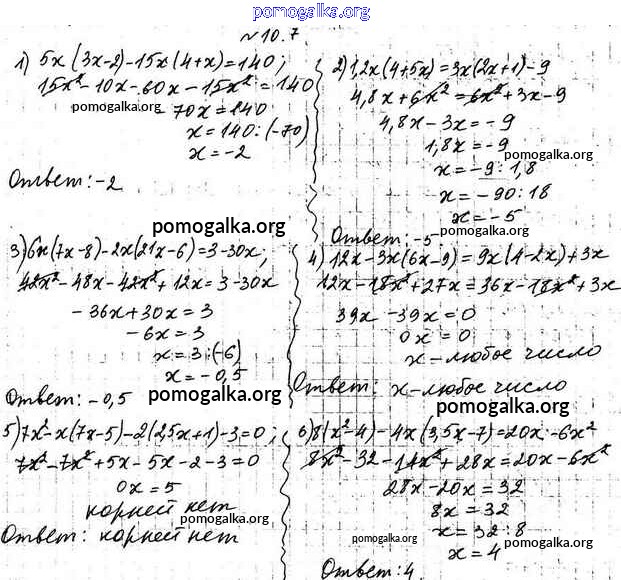 pomogalka.org
pomogalka.org
№10.7.
1) 5x(3x-2)-15x(4+x)=140;
15x²-10x-60x-15x²=140
pomogalka.org
-70x=140
x=140:(-70)
x=-2
Ответ:-2
2) 1,2x(4+5x)=3x(2x+1)-9
4,8x+6x²=6x²+3x-9
pomogalka.org
4,8x-3x=-9
1,8x=-9
pomogalka.org
x=-9:1,8
x=-90:18
x=-5
pomogalka.org
Ответ: -5.
pomogalka.org
3) 6x(7x-8)-2x(21x-6)=3-30x;
42x²-48x-42x²+12x=3-30x
-36x+30x=3
-6x=3
x=3:(-6)
x=-0,5
Ответ: -0,5
pomogalka.org
4) 12x-3x(6x-9)=9x(4-2x)+3x
12x-18x²+27x=36x-18x²+3x
39x-39x=0
0x=0
x-любое число
Ответ: x-любое число
pomogalka.org
5) 7x²-x(7x-5)-2(2,5x+1)-3=0;
7x²-7x²+5x-5x-2-3=0
0x=5
корней нет
pomogalka.org
Ответ: корней нет
6) 8(x²-4)-4x(3,5x-7)=20x-6x²
8x²-32-14x²+28x=20x-6x²
28x-20x=32
8x=32
x=32:8
pomogalka.org
pomogalka.org
x=4
Ответ: 4